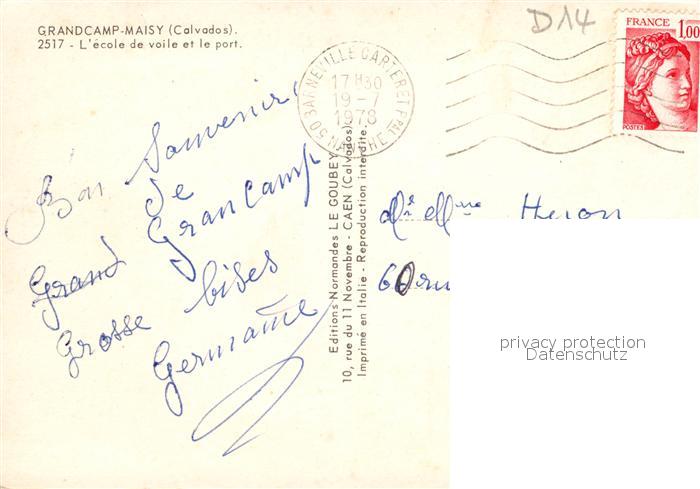 GRANDCAMP-MAISY (Calvados).
2517 - L'école de voile et le port.
D14
FRANCE
1,00
POSTES
50 BARNEVILLE CARTERET PPAL
17 H30
19 - 7
1978
MANCHE
Bon Souvenir
de
Grancamp
Grand
Grosse bises
Germaine
Editions Normandes LE GOUBEY
10, rue du 11 Novembre - CAEN (Calvados)
Imprimé en Italie - Reproduction interdite.
Mr et Mme Heron
60 ru
privacy protection
Datenschutz